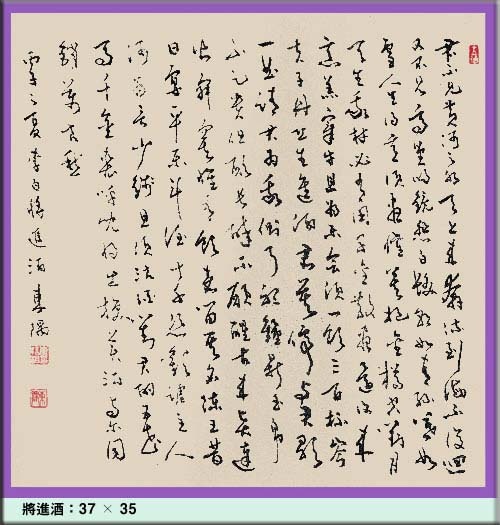 君不見黃河之水天上來奔流到海不復迴
又不見高堂明鏡悲白髮朝如青絲暮如
雪人生得意須盡歡莫把金樽空對月
天生我材必有用千金散盡還復來
烹羊宰牛且為樂會須一飲三百杯岑
夫子丹丘生進酒君莫停與君歌
一曲請君為我側耳聽鐘鼎玉帛
不足貴但願長醉不願醒古來賢達
皆寂寞惟有飲者留其名陳王昔
日宴平樂斗酒十千恣歡謔主人
何為言少錢且須沽酒對君酌五花
馬千金裘呼兒將出換美酒與爾同
銷萬古愁
之夏李白將進酒
將進酒：37 × 35